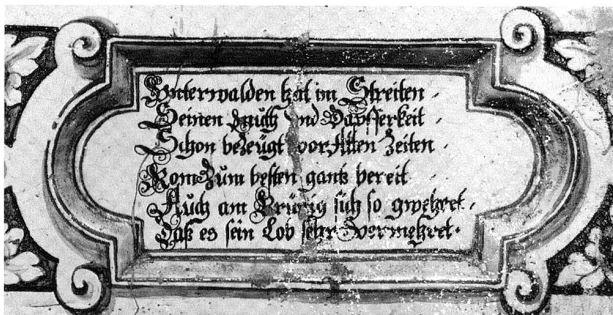 Unterwalden hat im Streiten
Seinen muth und Dapfferkeit
Schon bezeugt vor Alten Zeiten
Rom Zum besten gantz bereit
Auch am Brünig sich so gwehret
Daß es sein Lob sehr Vermehret.